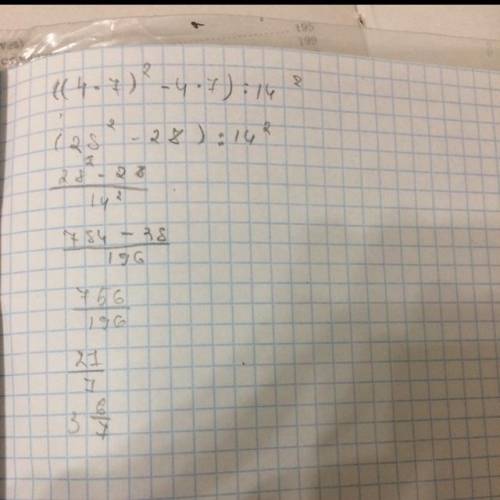 195
196
((4·7)² - 4·7) : 14²
(28² - 28) : 14²
28² - 28
14²
784 - 28
196
756
196
21
7
3 6/7